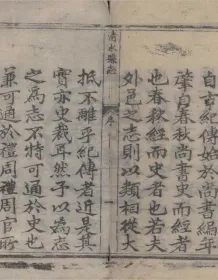 自古紀傳始於尚書編年
肇自春秋尚書史而經者
也春秋經而史者也若夫
外邑之志則以類相從大
清水縣志
抵不離乎紀傳者近是其
實亦史裁耳然予以為志
之為志不特可通於史也
兼可通於禮周禮周官所